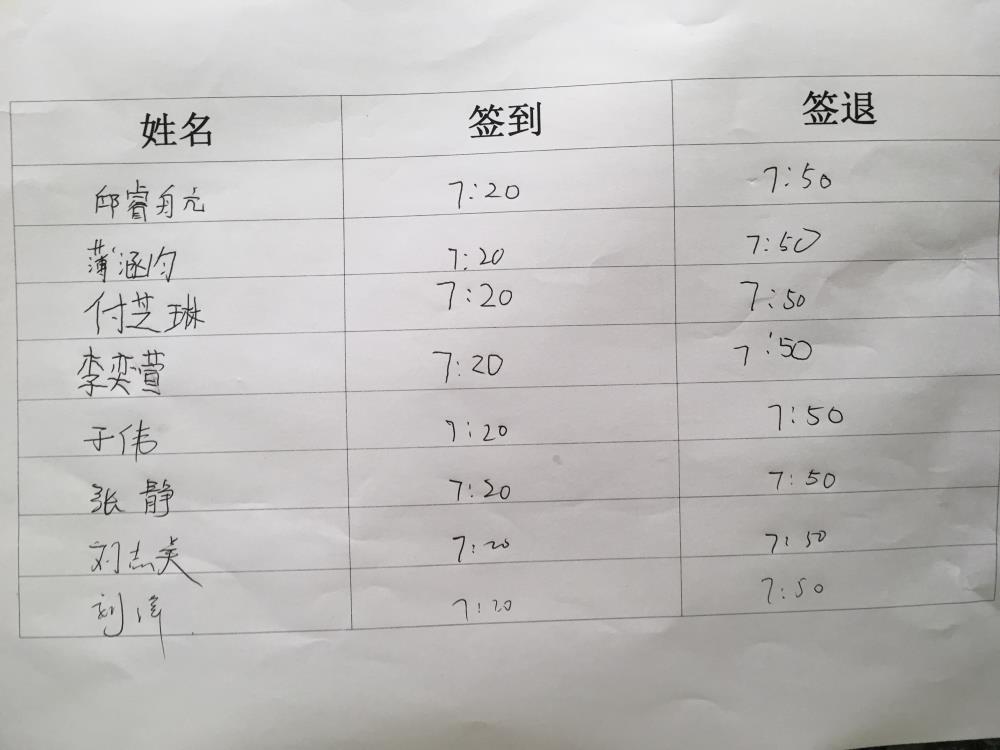 姓名 签到 签退
邱睿舟元 7:20 7:50
薄涵匀 7:20 7:50
付芝琳 7:20 7:50
李奕萱 7:20 7:50
于伟 7:20 7:50
张静 7:20 7:50
刘志 7:20 7:50
刘 7:20 7:50